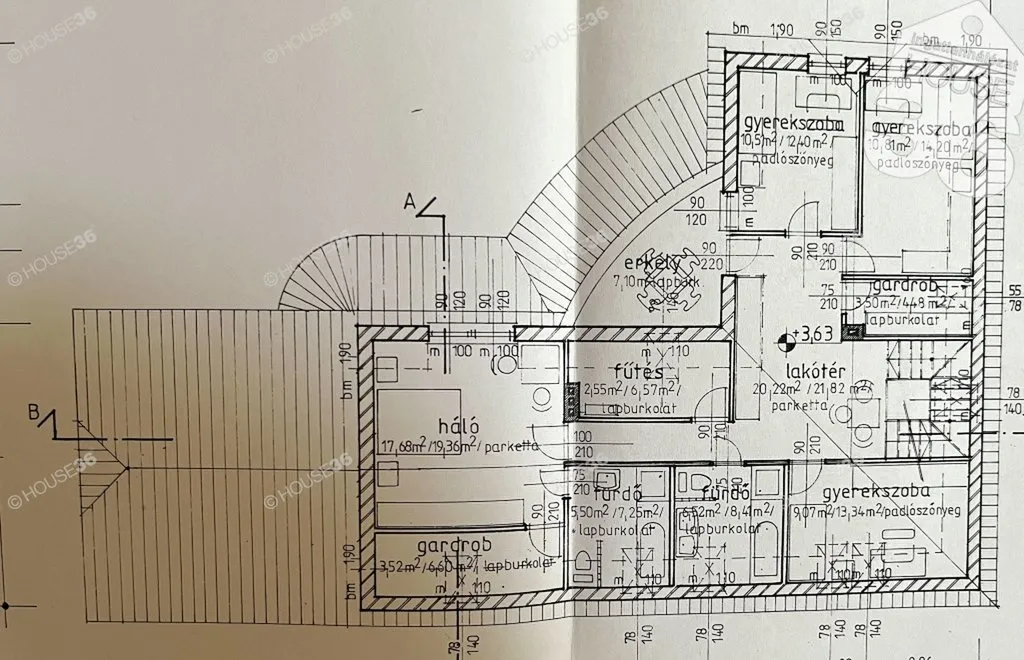 bm 1,90 90 150 90 150 bm 1,90
© HOUSE36
ingatlanhálózat
m 100
m 100
gyerekszoba
10,51m²/12,40m²/
padlószőnyeg
gyerekszoba
10,81m²/14,20m²/
padlószőnyeg
A
90
120
m 100
90
220
90
210
90
210
erkély
7,10m²/lapburk.
75
210
gardrob
3,50/4,48m²/
lapburkolat
55
78
90 120 90 120
+3,63
bm 1,90
m 100 m 100
m 110
fűtés
2,55m²/6,57m²/
lapburkolat
lakótér
20,22m²/21,82m²/
parketta
78
140
B
háló
17,68m²/19,36m²/parketta
100
210
90
210
75
210
90
210
75
210
90
210
fürdő
5,50m²/7,25m²/
lapburkolat
fürdő
6,52m²/8,41m²/
lapburkolat
gyerekszoba
9,07m²/13,34m²/padlószőnyeg
bm 1,90
gardrob
3,52m²/6,60m²/lapburkolat
m 110
m 110
m 110
m 110 m 110
78 140
78 140
78 140
78 140
78 140